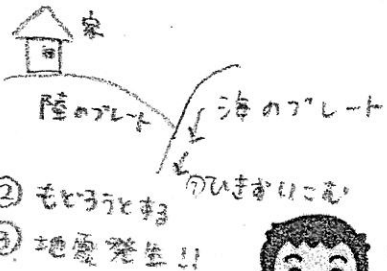 家
陸のプレート
海のプレート
①ひきずりこむ
②もどろうとする
③地震発生!!